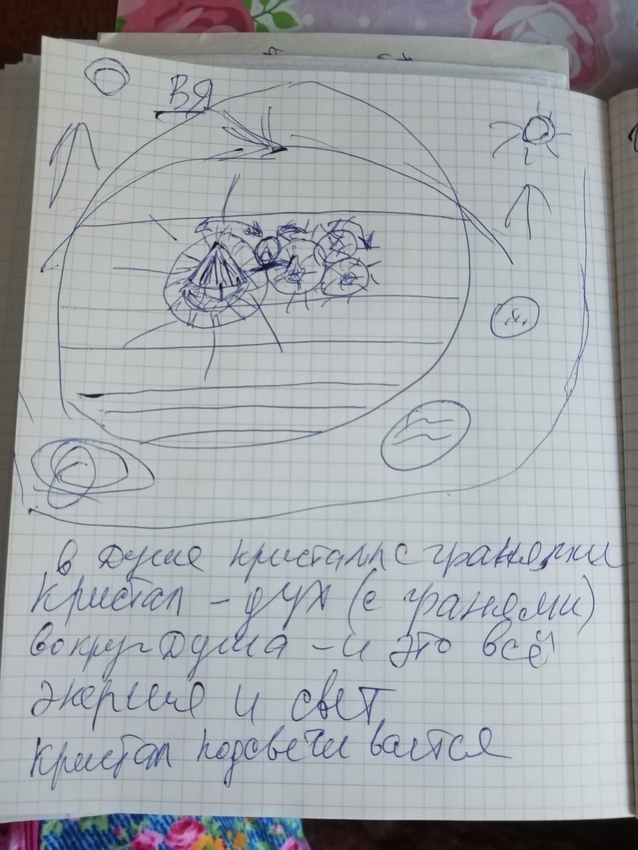 ВЯ
в Душе кристалл с гранями
Кристал - дух (с гранями)
вокруг Душа - и это всё
энергия и свет
кристал подсвечивается